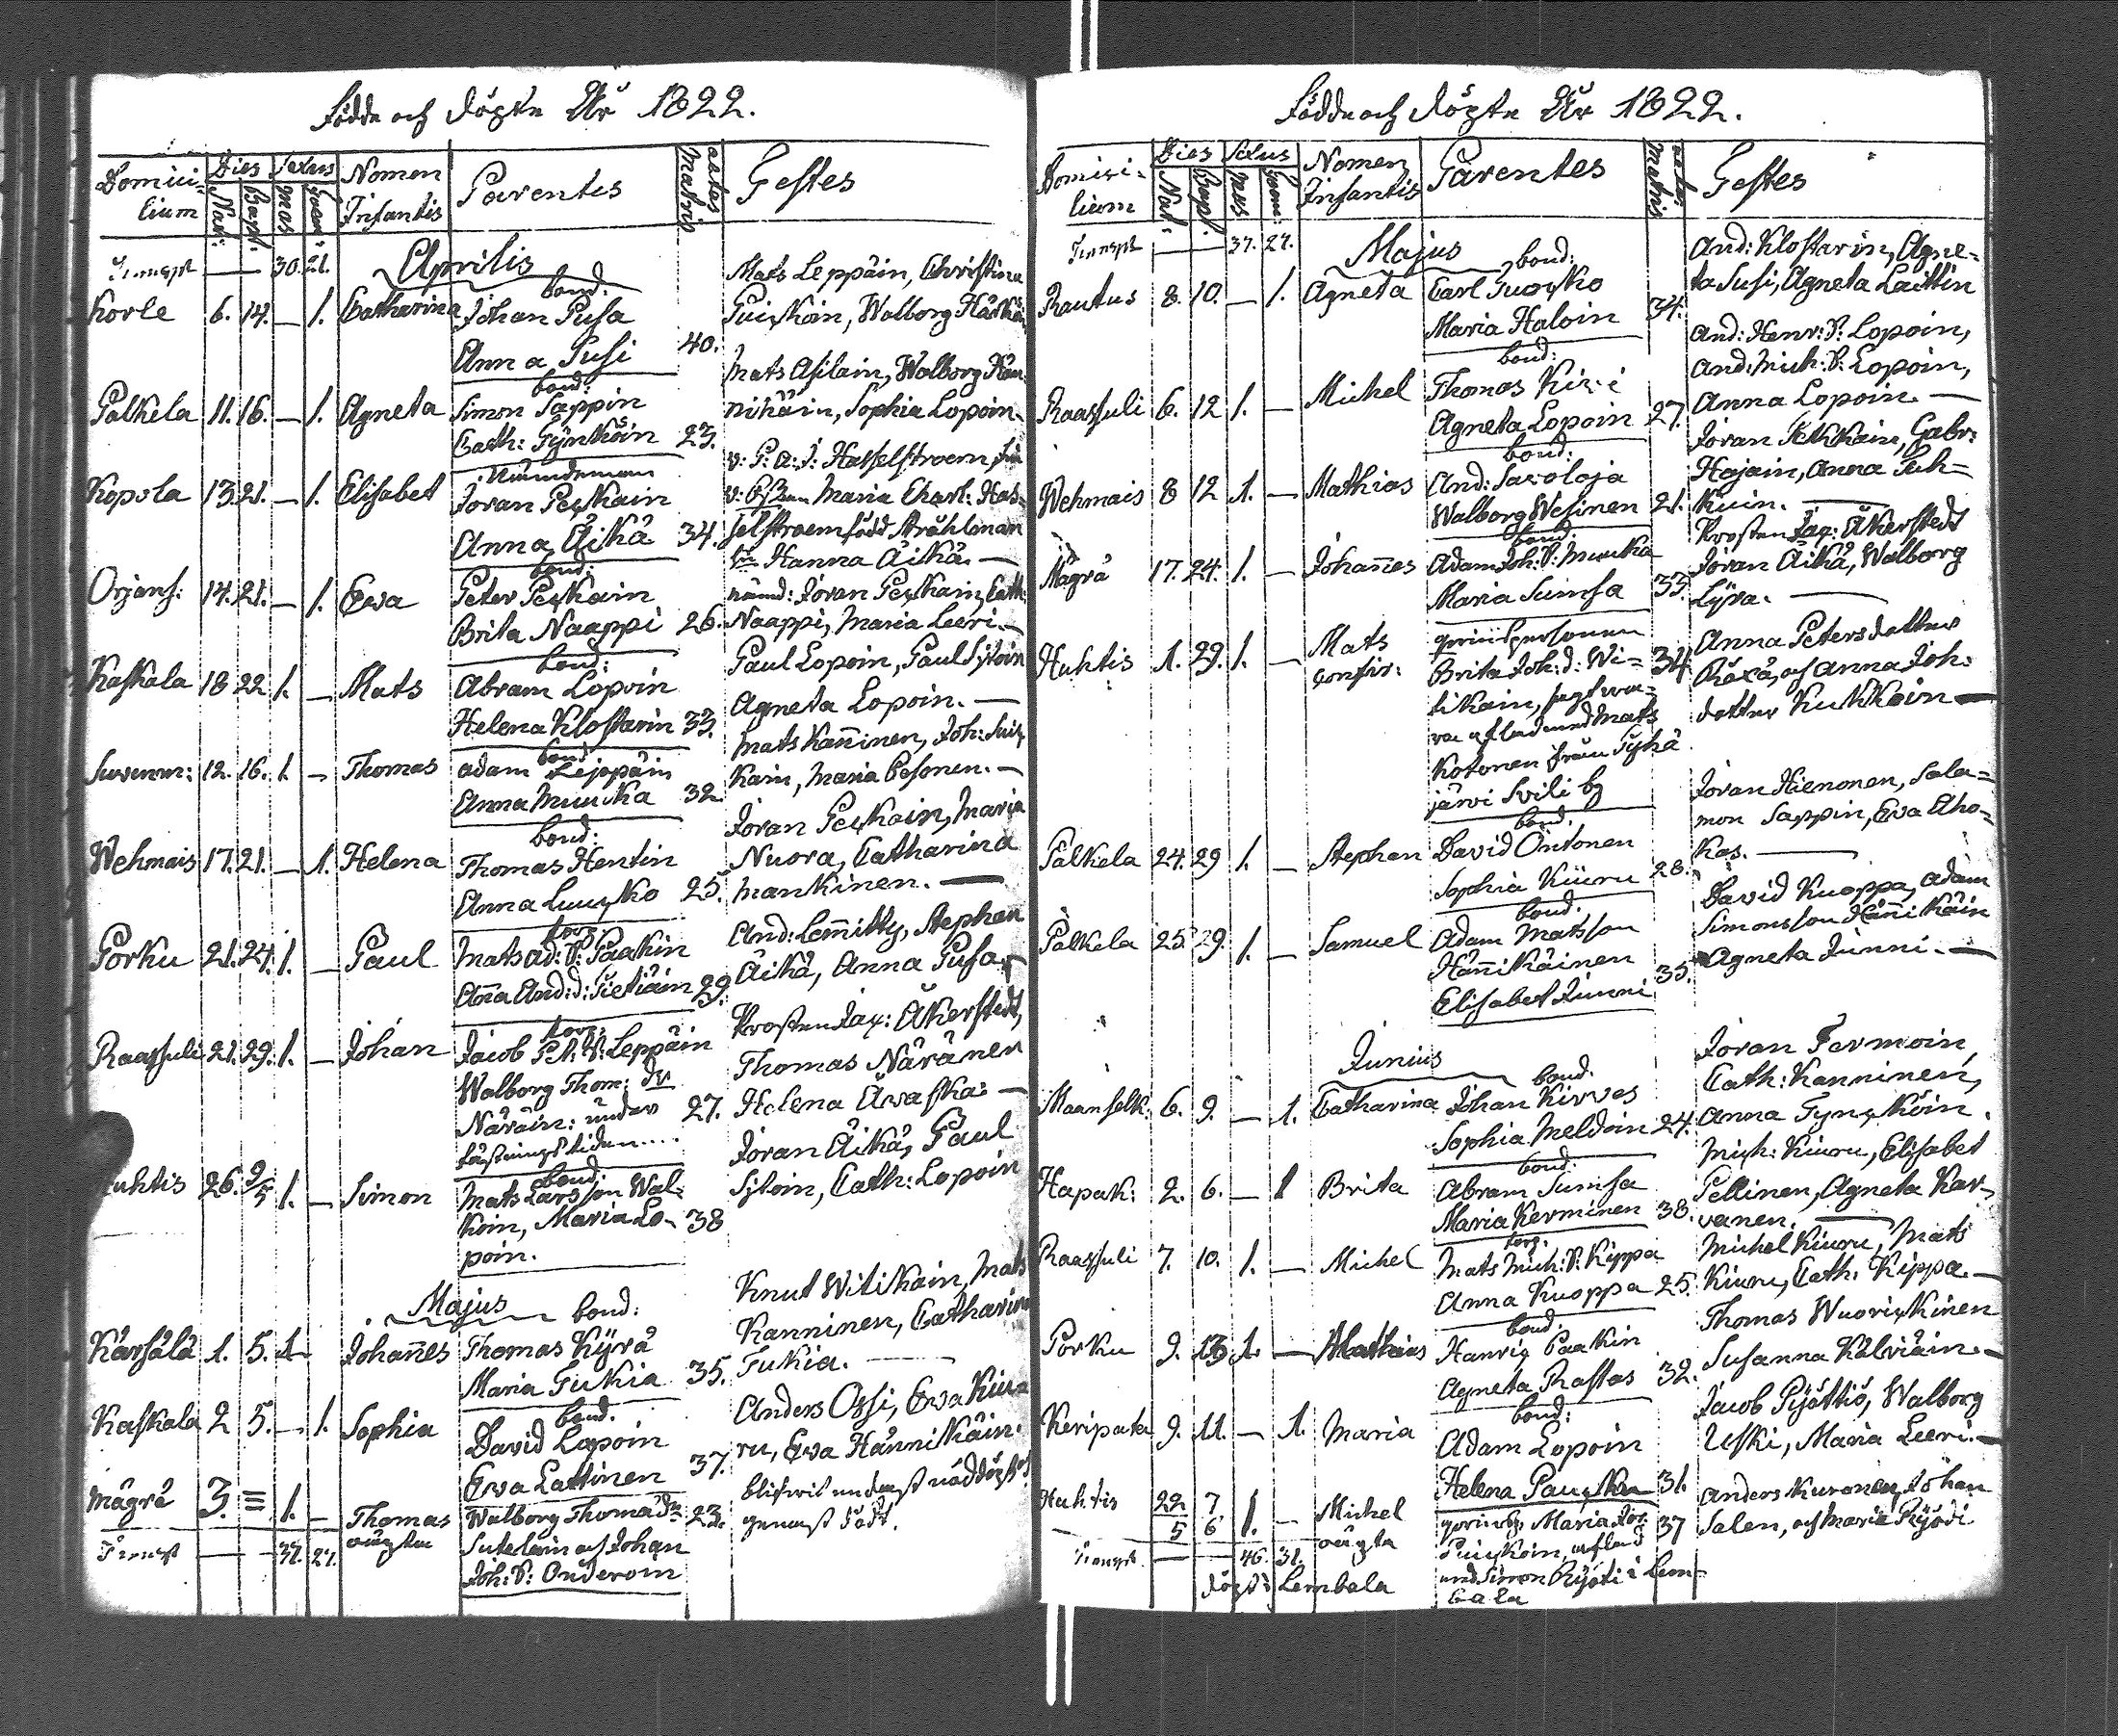 Födde och döpte År 1822.
Domici-
lium
Dies
Nat:
Bapt:
Sexus
Mas
Foem:
Nomen
Infantis
Parentes
aetas
Matris
Testes
Transpt — 30. 21.
Aprilis
Korle 6. 14. — 1. Catharina
bond:
Johan Pusa
Anna Susi 40.
Mats Leppäin, Christina
Puuskoin, Walborg
Palkela 11. 16. — 1. Agneta
bond:
Simon Sappin
Cath: Tynköin 23.
Mats Asilain, Walborg Hän-
nikäin, Sophia Lopoin.
Kopsola 13. 21. — 1. Elisabet
nämndeman
Jöran Peskain
Anna Äikä 34.
v: P: A: J: Hasselstroem,
Maria Charl: Has-
selstroem född Strählman
Hanna Äikä. —
Orjans: 14. 21. — 1. Ewa
bond:
Peter Peskain
Brita Naappi 26.
nämd: Jöran Peskain, Cath:
Naappi, Maria Leeri. —
Kaskala 18 22 1. — Mats
bond:
Abram Lopoin
Helena Klostarin 33.
Paul Lopoin, Paul Sjtoin
Agneta Lopoin. —
12. 16. 1. — Thomas
bond
Adam Lejopäin
Anna Muuska 32.
Mats Kan̄inen, Joh:
kain, Maria Pesonen. —
Wehmais 17. 21. — 1. Helena
bond:
Thomas Hentin
Anna Luusko 25.
Jöran Peskain, Maria
Nuora, Catharina
Mankinen. —
Porku 21. 24. 1. — Paul
torp:
Mats Ad: S: Paakin
An̄a And: d: Sietiäin 29.
And: Lem̄itty, Stephan
Äikä, Anna Pusa
Raassuli 21. 29. 1. — Johan
torp:
Jacob Pet: S: Leppäin
Walborg Thom: dr
Näräin: under 27.
fästningstiden....
Prosten Jac: Åkerstedt,
Thomas Näränen
Helena Äwaska: —
26. 9/5 1. — Simon
bond:
Mats Larsson Wal-
koin, Maria Lo- 38
poin.
Jöran Äikä, Paul
Sjtoin, Cath: Lopoin
Majus
Kärsälä 1. 5. 1 Johan̄es
bond:
Thomas Kyrä
Maria Tukia 35.
Knut Witikain, Mats
Kanninen, Catharina
Tukia. —
Kaskala 2 5. — 1. Sophia
bond.
David Lopoin
Ewa Lattinen 37.
Anders Ossi, Ewa Kiu-
ru, Ewa Hännikäin.
Mägrä 3. = 1. — Thomas
oägta
Walborg Thomædr 23.
Sutelain och Johan
Joh: S: Onderoin
blifwit nöddöpt och
genast död.
Transpt — 37. 27.
Födde och döpte År 1822.
Domici-
lium
Dies
Nat:
Bapt:
Sexus
Mas
Foem:
Nomen
Infantis
Parentes
aetas
Matris
Testes
Transpt — 37. 27.
Majus
Rautus 8. 10. — 1. Agneta
bond:
Carl Tuosko
Maria Haloin 34.
And: Klostarin, Agne-
ta Susi, Agneta Laittin
Raassuli 6. 12 1. — Michel
bond:
Thomas Kiiri
Agneta Lopoin 27.
And: Henr: S: Lopoin,
And: Mich: S: Lopoin,
Anna Lopoin. —
Wehmais 8 12 1. — Mathias
bond:
And: Savolaja
Walborg Wesinen 21.
Jöran Kekkain, Gabr:
Hajain, Anna Suk-
kuin. —
Mägrä 17. 24. 1. — Johan̄es
bond:
Adam Joh: S: Muuska
Maria Sumsa 33.
Prosten Jac: Åkerstedt
Jöran Äikä, Walborg
Lyra. —
Huhtis 1. 29. 1. — Mats
qwinspersonen
Brita Joh: d: Wi- 34
tikain, sagt wa-
ra aflad med Mats
Kotonen från Pyhä
järvi Swili by
Anna Petersdotter
Räxä, och Anna Joh:
dotter Kukkoin —
Palkela 24. 29 1. — Stephan
bond.
David Ontonen
Sophia Kiuru 28.
Jöran Hienonen, Salo-
mon Sappin, Ewa Aho-
kas. —
Palkela 25. 29. 1. — Samuel
bond.
Adam Matsson
Hän̄ikäinen
Elisabet Junni 35.
David Kuoppa, Adam
Simonsson Hän̄ikäin
Agneta Junni. —
Junius
Maanselk: 6. 9. — 1. Catharina
bond.
Johan Kirves
Sophia Meldoin 24.
Jöran Termoin,
Cath: Kanninen,
Anna Tynsköin.
Hapak: 2. 6. — 1 Brita
bond:
Abram Sumsa
Maria Kerminen 38.
Mich: Kiuru, Elisabet
Pellinen, Agneta Kar-
vanen. —
Raassuli 7. 10. 1. — Michel
torp.
Mats Mich: S: Kippa
Anna Kuoppa 25.
Michel Kiuru, Mats
Kiuru, Cath: Kippa. —
Porku 9. 13. 1. — Mathias
bond.
Henric Paakin
Agneta Rastas 32.
Thomas Wuoriskinen
Susanna Kälviäin. —
Keripata 9. 11. — 1. Maria
bond:
Adam Lopoin
Helena Pauska 31.
Jacob Pyöttiö, Walborg
Uski, Maria Leeri. —
Huhtis 22/5 7/6 1. — Michel
oägta
Maria Jör: 37
Puuskoin, aflad
med Simon Ryödi i Lem-
bala
Anders Kuronen, Johan
Salen, och Maria Ryödi
Transpt — 46. 31.
döpt i Lembala